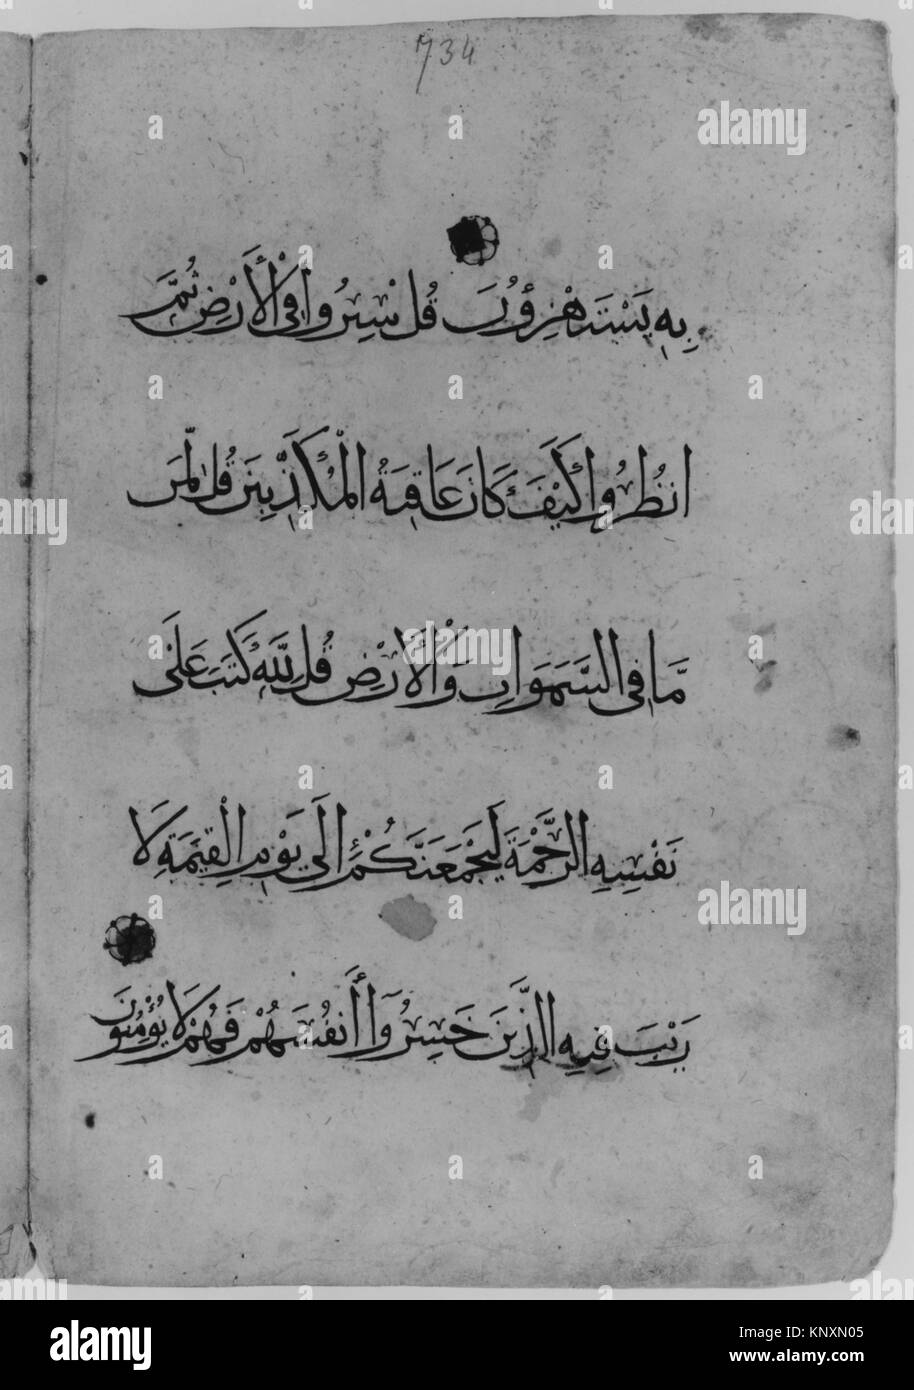 734
بِهِ يَسْتَهْزِؤُنَ قُلْ سِيرُوا فِي الْأَرْضِ ثُمَّ
انْظُرُوا كَيْفَ كَانَ عَاقِبَةُ الْمُكَذِّبِينَ قُلْ لِمَنْ
مَّا فِي السَّمَوَاتِ وَالْأَرْضِ قُلْ لِلَّهِ كَتَبَ عَلَى
نَفْسِهِ الرَّحْمَةَ لَيَجْمَعَنَّكُمْ إِلَى يَوْمِ الْقِيَمَةِ لَا
رَيْبَ فِيهِ الَّذِينَ خَسِرُوا أَنْفُسَهُمْ فَهُمْ لَا يُؤْمِنُونَ
alamy
alamy
alamy
alamy
Image ID: KNXN05
www.alamy.com